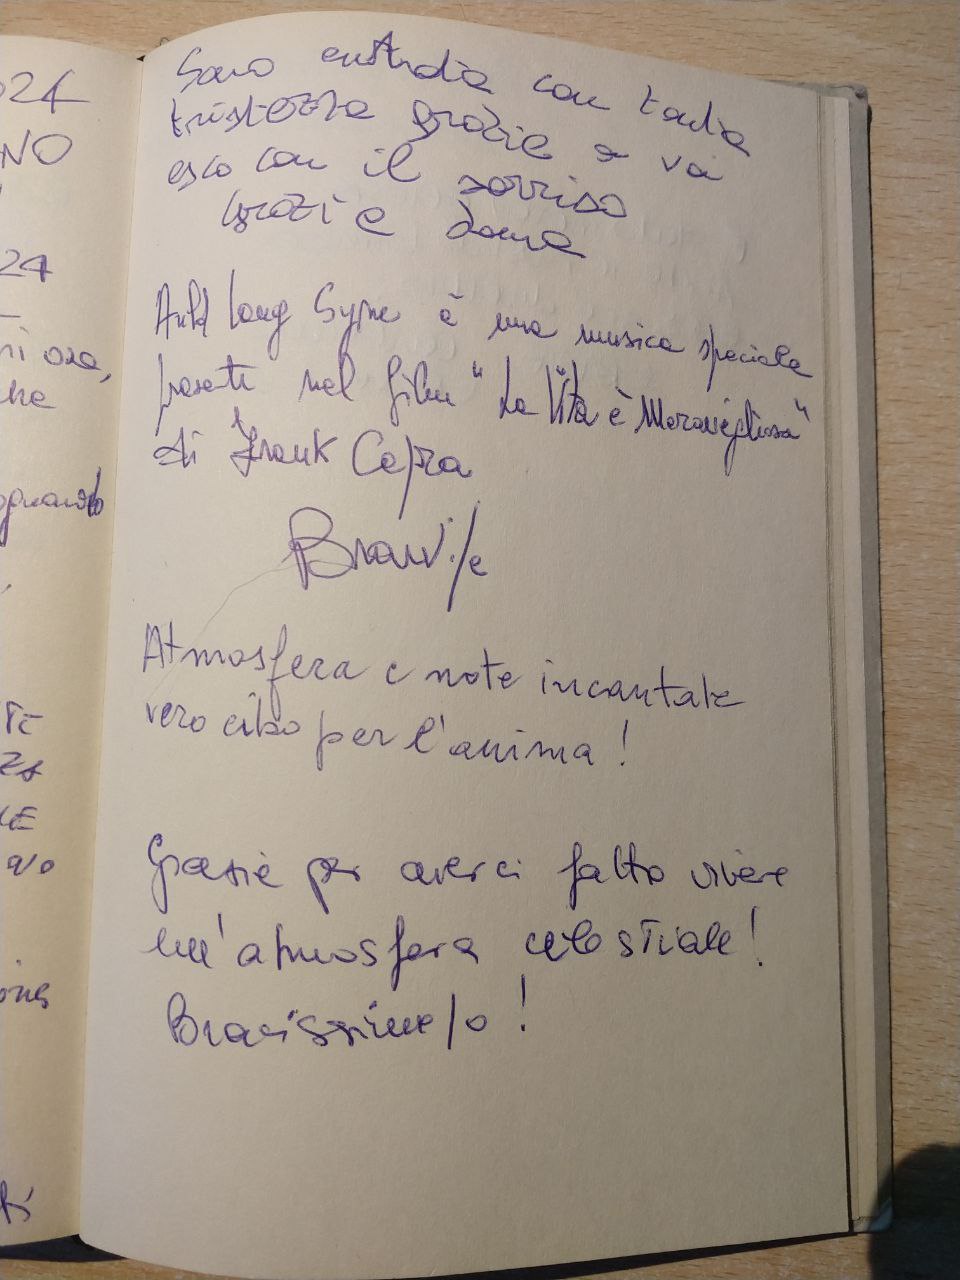 024
NO
24
ni ora,
che
ognando
TE
ZA
LE
avo
Sono entrata con tanta
tristezza grazie a voi
esco con il sorriso
Grazie
Auld Lang Syne è una musica speciale
presente nel film "La Vita è Meravigliosa"
di Frank Capra
Bravi/e
Atmosfera e note incantate
vero cibo per l'anima!
Grazie per averci fatto vivere
un'atmosfera celestiale!
Bravissime/o!